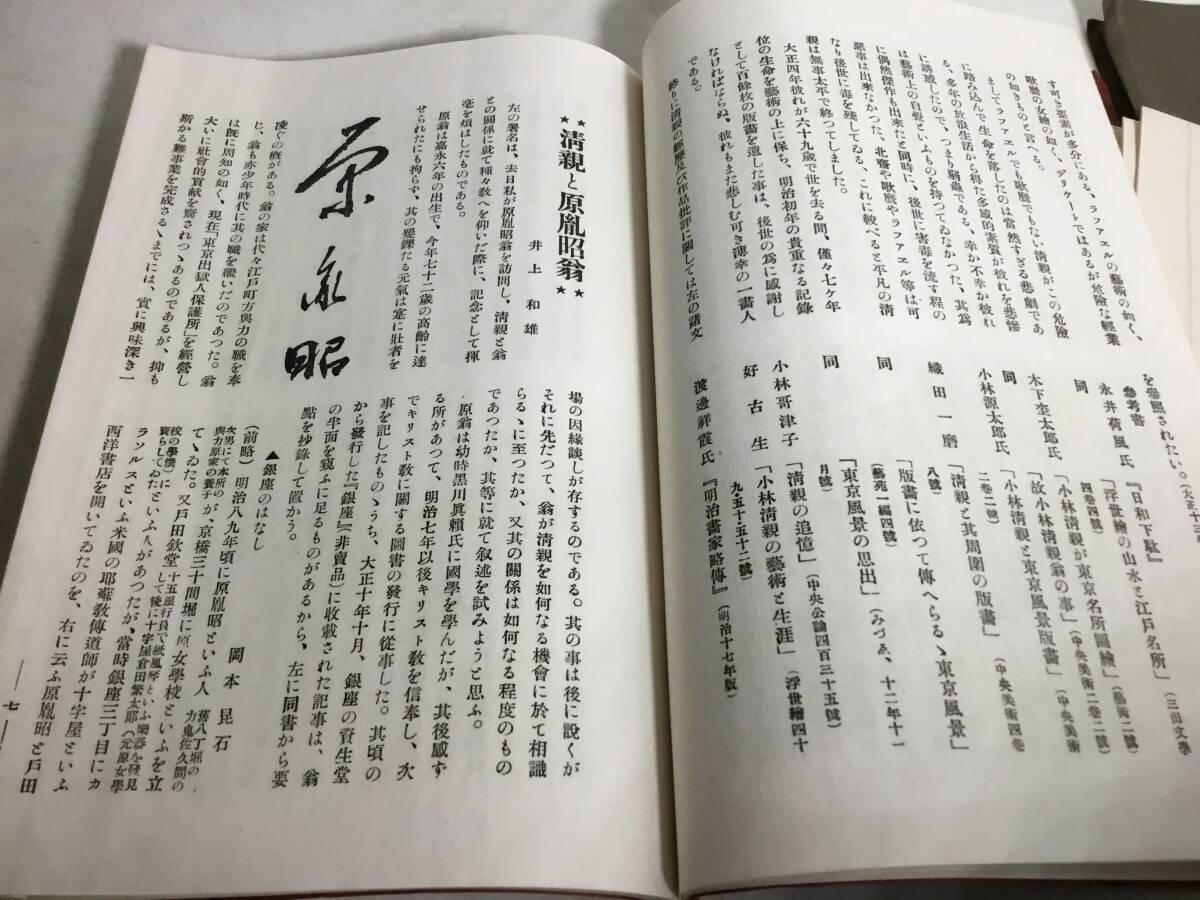 す可き要素が多分にある、ラファエルの藝術の如く、
歌麿の女繪の如く、デリケートではあるが危險な輕業
の如きものと言へる。
ましてラファエルでも歌麿でもない淸親がこの危險
に踏み込んで生命を落したのは當然すぎる悲劇であ
る、多年の放浪生活から得た多感的素質が彼れを悲慘
に誘惑したので、つまり弱蟲である、幸か不幸か彼れ
は藝術上の自覺といふものを持つてゐなかつた、其爲
に偶然傑作も出來たと同時に、後世に害毒を流す程の
惡事は出來なかつた、北齋や歌麿やラファエル等は可
なり後世に毒を殘してゐる、これに較べると平凡の淸
親は無事太平で終つてしまました。
大正四年彼れが六十九歲で世を去る間、僅々七ケ年
位の生命を藝術の上に保ち、明治初年の貴重なる記錄
として百餘枚の版畫を遺した事は、後世の爲に感謝し
なければならぬ、彼れもまた悲しむ可き薄幸の一畫人
である。
終りに淸親の經歷及び作品批評に關しては左の諸文
を參照されたい。
參考書
永井荷風氏 『日和下駄』
「浮世繪の山水と江戶名所」(三田文學
四卷四號)
同 「小林淸親が東京名所圖繪」(藝術二號)
木下杢太郎氏 「故小林淸親翁の事」(中央美術二卷二號)
同 「小林淸親と東京風景版畫」(中央美術
二卷二號)
小林源太郎氏 「淸親と其周圍の版畫」(中央美術四卷
八號)
織田一磨 「版畫に依つて傳へらるゝ東京風景」
(藝苑一編四號)
同 「東京風景の思出」(みづゑ、十二年十一
月號)
小林哥津子 「淸親の追憶」(中央公論四百三十五號)
好古生 「小林淸親の藝術と生涯」(浮世繪四十
九・五十・五十二號)
渡邊祥霞氏 『明治畫家略傳』(明治十七年版)
淸親と原胤昭翁
井上和雄
左の署名は、去日私が原胤昭翁を訪問し、淸親と翁
との關係に就て種々敎へを仰いだ際に、記念として揮
毫を煩はしたものである。
原翁は嘉永六年の出生で、今年七十二歲の高齡に達
せられたにも拘らず、其の矍鑠たる元氣は寔に壯者を
原胤昭
凌ぐの槪がある。翁の家は代々江戶町方與力の職を奉
じ、翁も亦少年時代に其の職を繼いだのであつた。翁
は旣に周知の如く、現在「東京出獄人保護所」を經營し
大いに社會的貢獻を齎されつゝあるのであるが、抑も
斯かる難事業を完成さるゝまでには、實に興味深き一
場の因緣談しが存するのである。其の事は後に說くが
それに先だつて、翁が淸親を如何なる機會に於て相識
らるゝに至つたか、又其の關係は如何なる程度のもの
であつたか、其等に就て敍述を試みようと思ふ。
原翁は幼時黑川眞賴氏に國學を學んだが、其後感ず
る所があつて、明治七年以後キリスト敎を信奉し、次
でキリスト敎に關する圖書の發行に從事した。其頃の
事を記したものゝうち、大正十年十月、銀座の資生堂
から發行した『銀座』(非賣品)に收載された記事は、翁
の半面を窺ふに足るものがあるから、左に同書から要
點を抄錄して置かう。
▲銀座のはなし
岡本昆石
(前略) 明治八九年頃に原胤昭といふ人 舊八丁堀の與力鬼佐久間の
次男にて本所の與力原家の養子 が、京橋三十間堀に原女學校といふを立
てゝゐた。又戶田欽堂 十五銀行員で紙風琴といふ樂器を發見
して後に十字屋倉田繁太郎(元原女學
校の學僕)に賣らしてゐたといふ人 があつたが、當時銀座三丁目にカ
ラゾルスといふ米國の耶蘇敎傳道師が十字屋といふ
西洋書店を開いてゐたのを、右に云ふ原胤昭と戶田
七